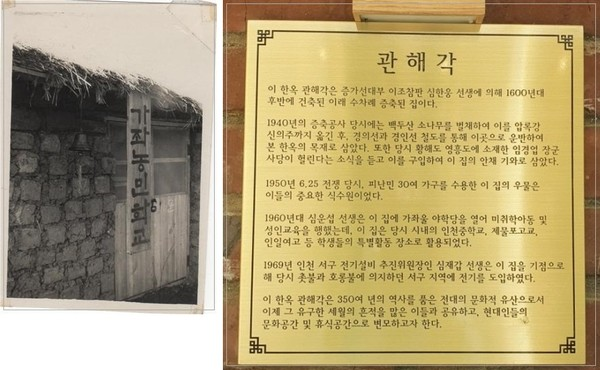 가좌농민학교
관해각
이 한옥 관해각은 증가선대부 이조참판 심한웅 선생에 의해 1600년대
후반에 건축된 이래 수차례 증축된 집이다.
1940년의 증축공사 당시에는 백두산 소나무를 벌채하여 이를 압록강
신의주까지 옮긴 후, 경의선과 경인선 철도를 통해 이곳으로 운반하여
본 한옥의 목재로 삼았다. 또한 당시 황해도 영흥도에 소재한 임경업 장군
사당이 헐린다는 소식을 듣고 이를 구입하여 이 집의 안채 기와로 삼았다.
1950년 6.25 전쟁 당시, 피난민 30여 가구를 수용한 이 집의 우물은
이들의 중요한 식수원이었다.
1960년대 심운섭 선생은 이 집에 가좌울 야학당을 열어 미취학아동 및
성인교육을 행했는데, 이 집은 당시 시내의 인천중학교, 제물포고교,
인일여고 등 학생들의 특별활동 장소로 활용되었다.
1969년 인천 서구 전기설비 추진위원장인 심재갑 선생은 이 집을 기점으로
해 당시 촛불과 호롱불에 의지하던 서구 지역에 전기를 도입하였다.
이 한옥 관해각은 350여 년의 역사를 품은 전대의 문화적 유산으로서
이제 그 유구한 세월의 흔적을 많은 이들과 공유하고, 현대인들의
문화공간 및 휴식공간으로 변모하고자 한다.